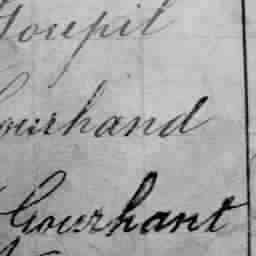 Goupil
Gourhand
Gourhant